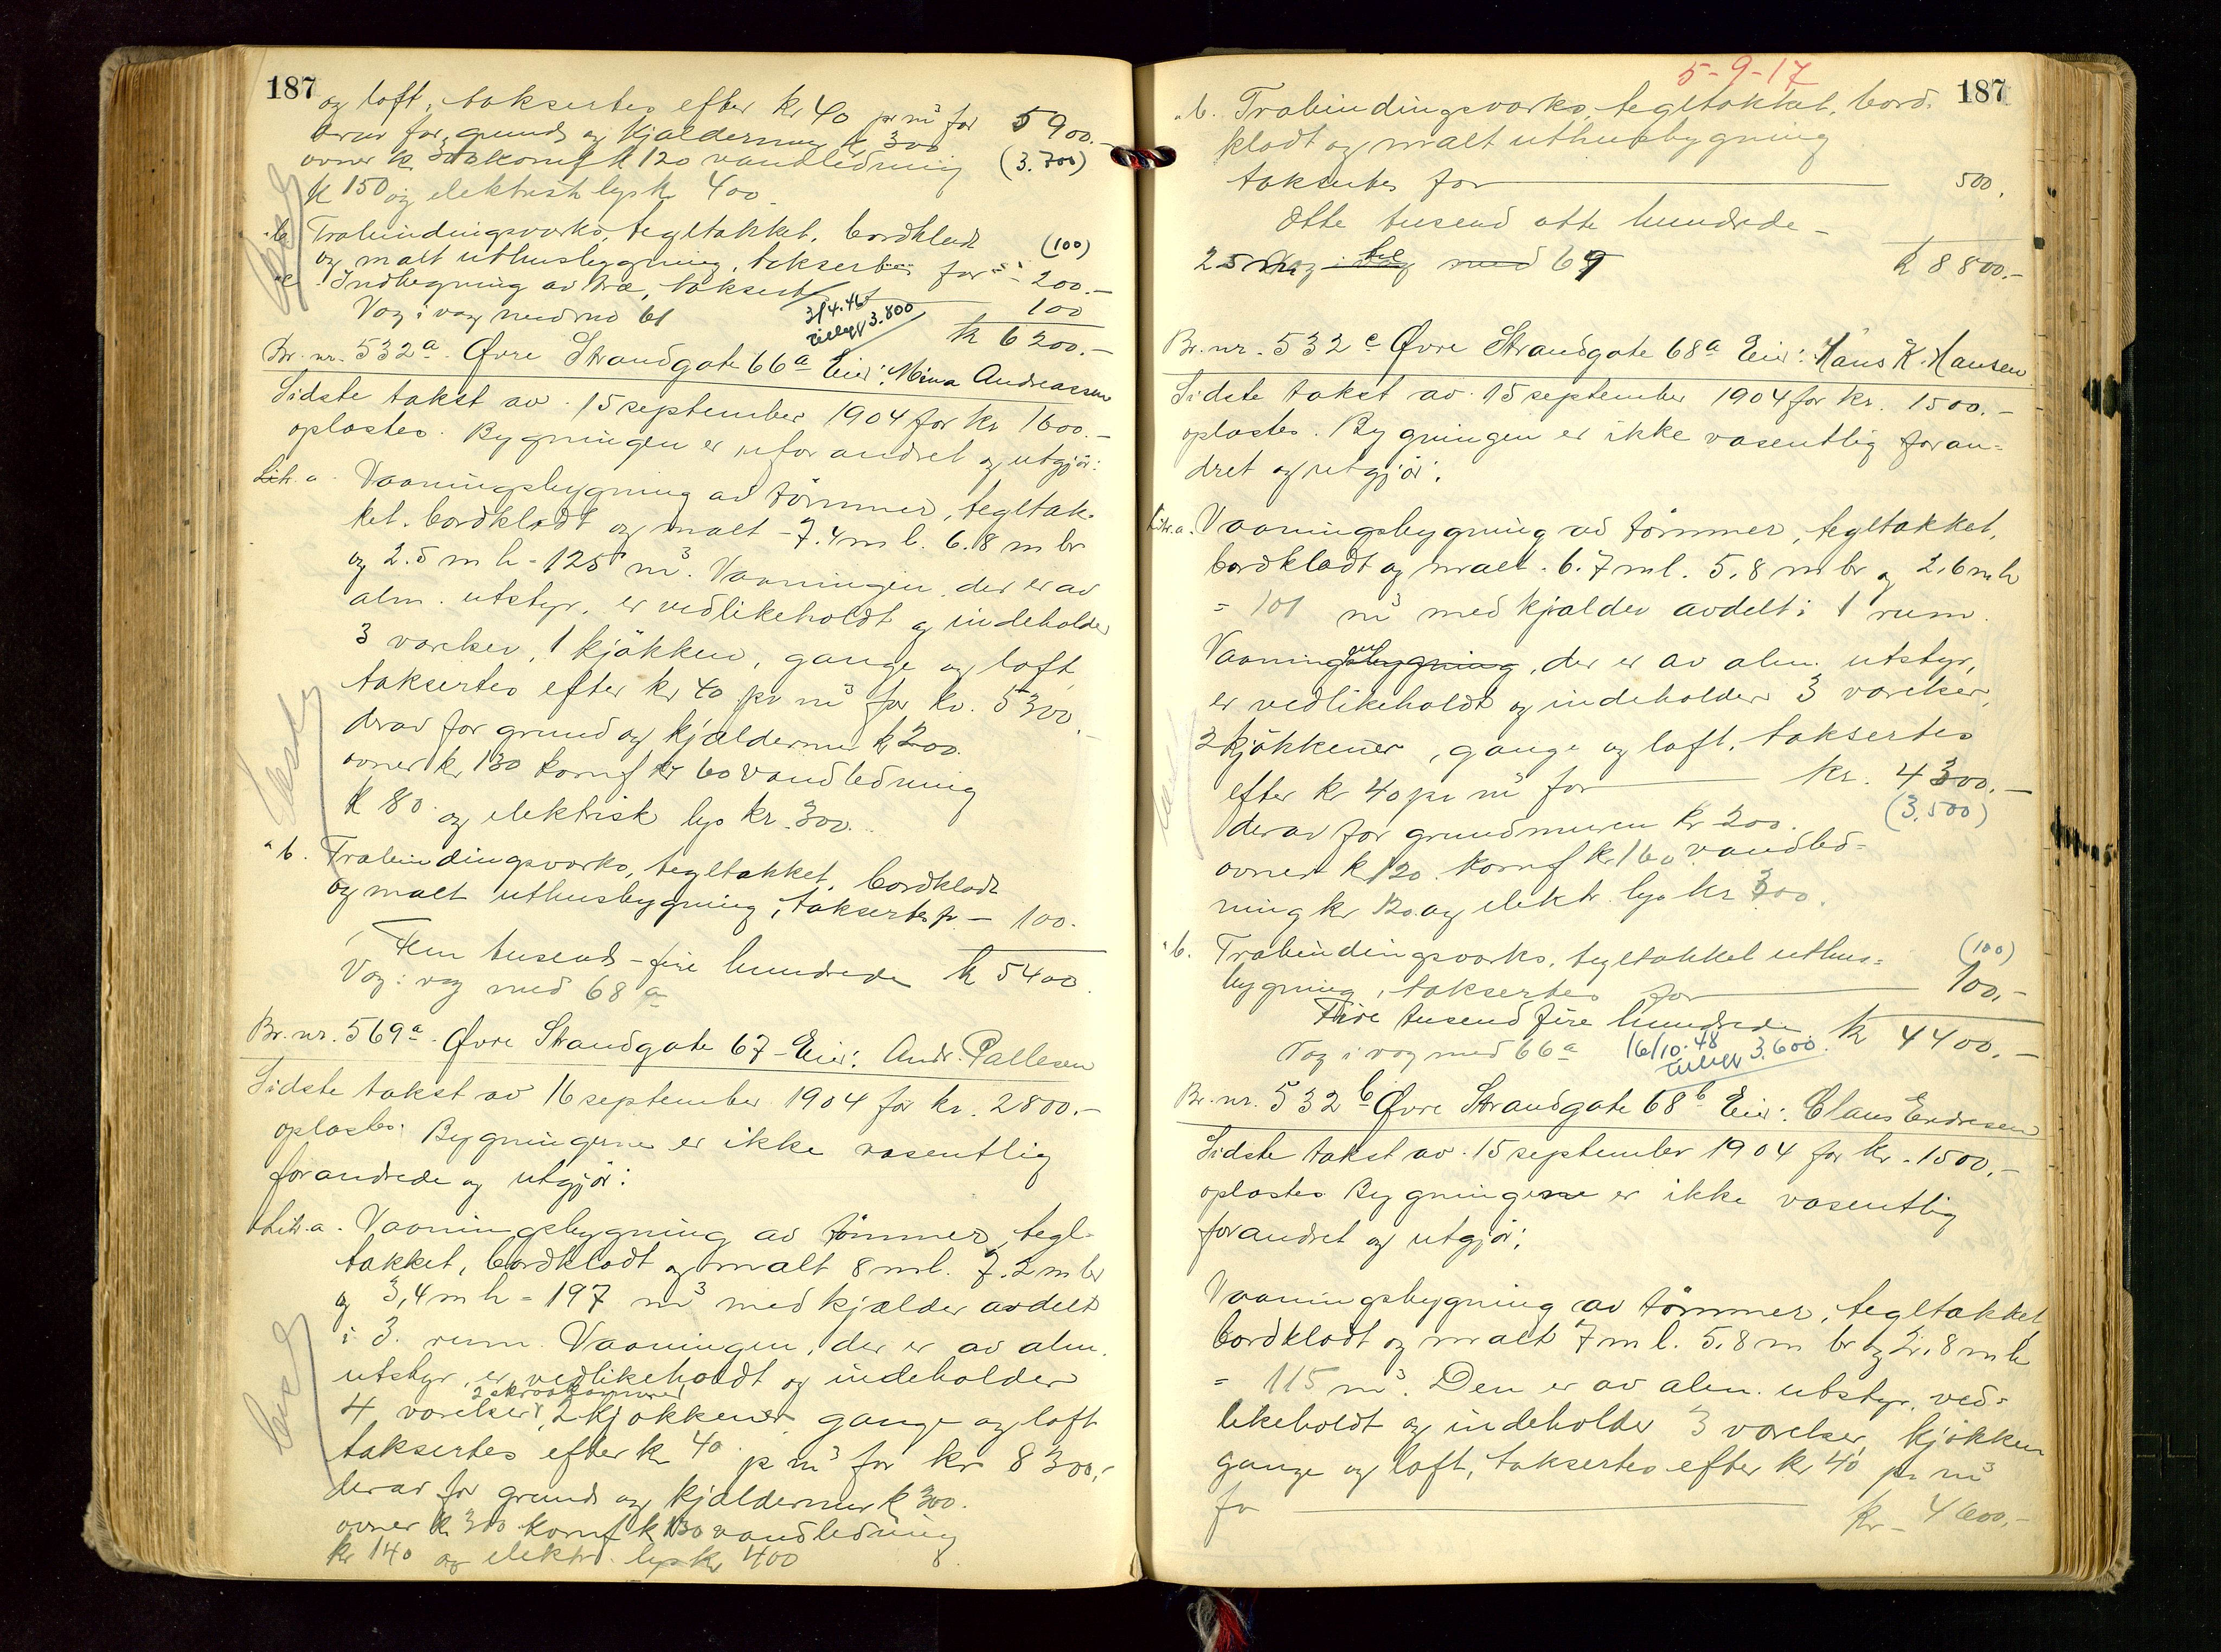 187
og loft, taksertes efter kr 40 pr m³ for 5900.-
derav for grund og kjældermur k 300 (3.700)
ovner k 300 komf k 120 vandledning
k 150 og elektrisk lys k 400.
"b. Træbindingsværks, tegltækket, bordklædt (100)
og malt uthusbygning, taksertes for - 200.-
"c. Indhegning av træ, taksert 100
Væg i væg med no 61 3/4.46 tillegg 3.800 k 6200.-
Br. nr. 532ª. Øvre Strandgate 66ª Eier: Mina Andreassen
Sidste takst av 15 september 1904 for kr 1600.-
oplæstes. Bygningen er uforandret og utgjør:
Litr. a. Vaaningsbygning av tømmer, tegltæk-
ket, bordklædt og malt - 7.4 m l. 6.8 m br
og 2.5 m h = 125 m³. Vaaningen, der er av
alm. utstyr, er vedlikeholdt og indeholder
3 værelser, 1 kjøkken, gange og loft,
taksertes efter kr 40 pr m³ for kr. 5300.-
derav for grund og kjældermur k 200.
ovner kr 130 komf kr 60 vandledning
k 80. og elektrisk lys kr. 300.
"b. Træbindingsværks, tegltækket, bordklædt
og malt uthusbygning, taksertes fr - 100.-
Fem tusend - fire hundrede k 5400.
Væg i væg med 68 a
Br. nr. 569ª. Øvre Strandgate 67 - Eier: Andr. Pallesen
Sidste takst av 16 september 1904 for kr. 2800.-
oplæstes. Bygningerne er ikke væsentlig
forandrede og utgjør:
Litr. a. Vaaningsbygning av tømmer, tegl-
tækket, bordklædt og malt 8 m l. 7.2 m br
og 3,4 m h = 197 m³ med kjælder avdelt
i 3. rum. Vaaningen, der er av alm.
utstyr, er vedlikeholdt og indeholder
2 skraakammer
4 værelser, 2 kjøkkener, gange og loft
taksertes efter kr 40 pr m³ for kr 8300.-
derav for grund og kjældermur k 300.
ovner k 300 komf k 130 vandledning
kr 140 og elektr. lys kr 400
5-9-17
187
"b. Træbindingsværks, tegltækket, bord-
klædt og malt uthusbygning
taksertes for 500.
Otte tusend otte hundrede -
25 m til 69 k 8800.-
Br. nr. 532 c Øvre Strandgate 68ª Eier: Hans K. Hansen
Sidste takst av 15 september 1904 for kr. 1500.-
oplæstes. Bygningen er ikke væsentlig foran-
dret og utgjør:
Litr. a. Vaaningsbygning av tømmer, tegltækket,
bordklædt og malt. 6.7 m l. 5,8 m br og 2,6 m h
= 101 m³ med kjælder avdelt i 1 rum.
Vaaningen, der er av alm. utstyr,
er vedlikeholdt og indeholder 3 værelser,
2 kjøkkener, gange og loft, taksertes
efter kr 40 pr m³ for kr. 4300.-
derav for grundmuren kr 200. (3.500)
ovner k 120. komf kr 160 vandled-
ning kr 120. og elektr. lys kr 300.
"b. Træbindingsværks, tegltækket uthus- (100)
bygning, taksertes for 100.-
Fire tusend fire hundrede k 4400.-
Væg i væg med 66 a 16/10.48 tillegg 3.600.
Br. nr. 532 b Øvre Strandgate 68 b Eier: Claus Endresen
Sidste takst av 15 september 1904 for kr. 1500.-
oplæstes Bygningene er ikke væsentlig
forandret og utgjør:
Vaaningsbygning av tømmer, tegltækket,
bordklædt og malt 7 m l. 5,8 m br og 2,8 m h
= 115 m³. Den er av alm. utstyr, ved-
likeholdt og indeholder 3 værelser, kjøkken
gange og loft, taksertes efter kr 40 pr m³
for kr - 4600.-